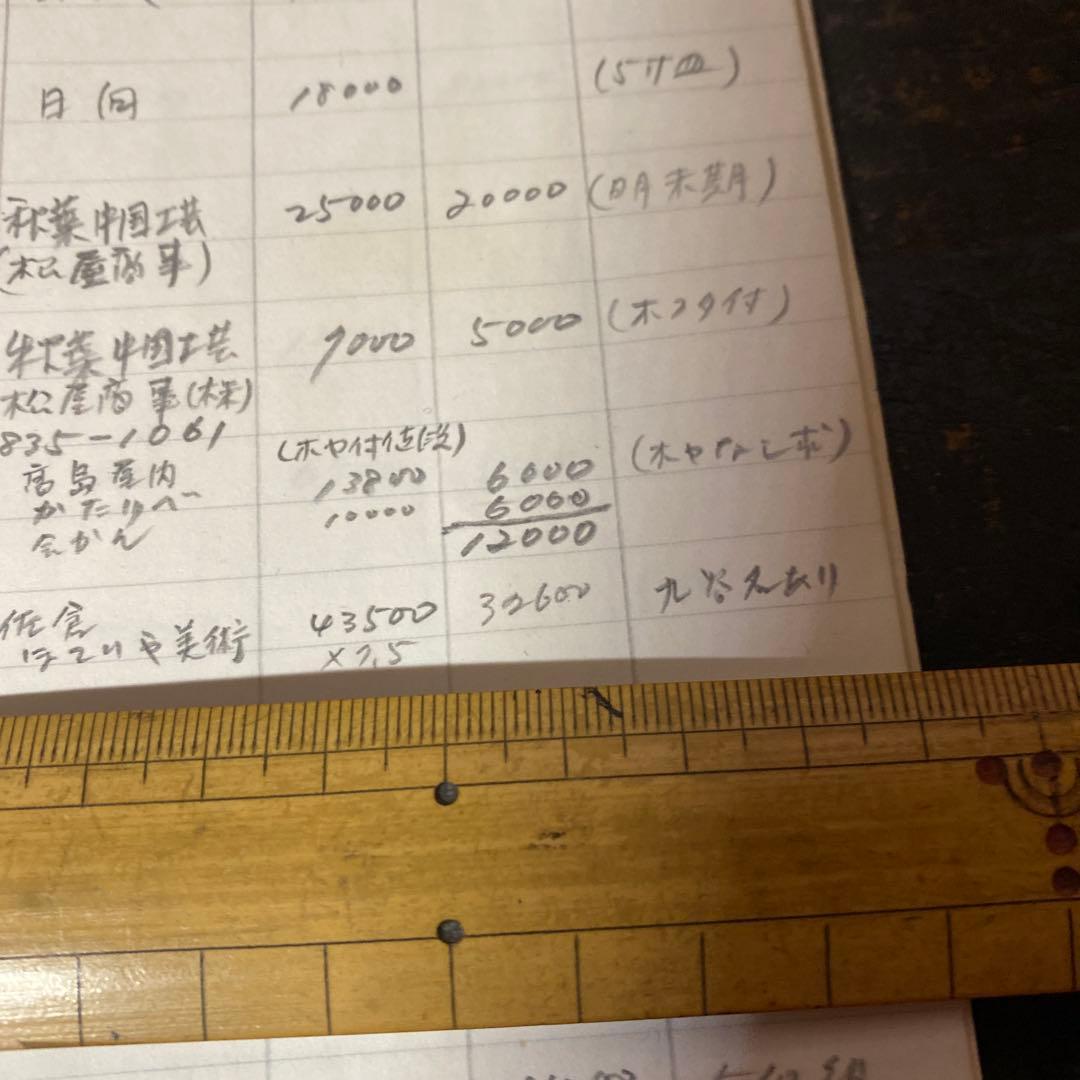 日向 18000 (5寸皿)
秋葉中国工芸 25000 20000 (明末期)
(松屋商事)
秋葉中国工芸 9000 5000 (木フタ付)
松屋商事(株)
835-1061 (ホヤ付値段)
高島屋内 13800 6000 (ホヤなし
かたりべ 10000 6000
会かん 12000
佐倉 43500 32600 九谷名あり
ほていや美術 ×7.5